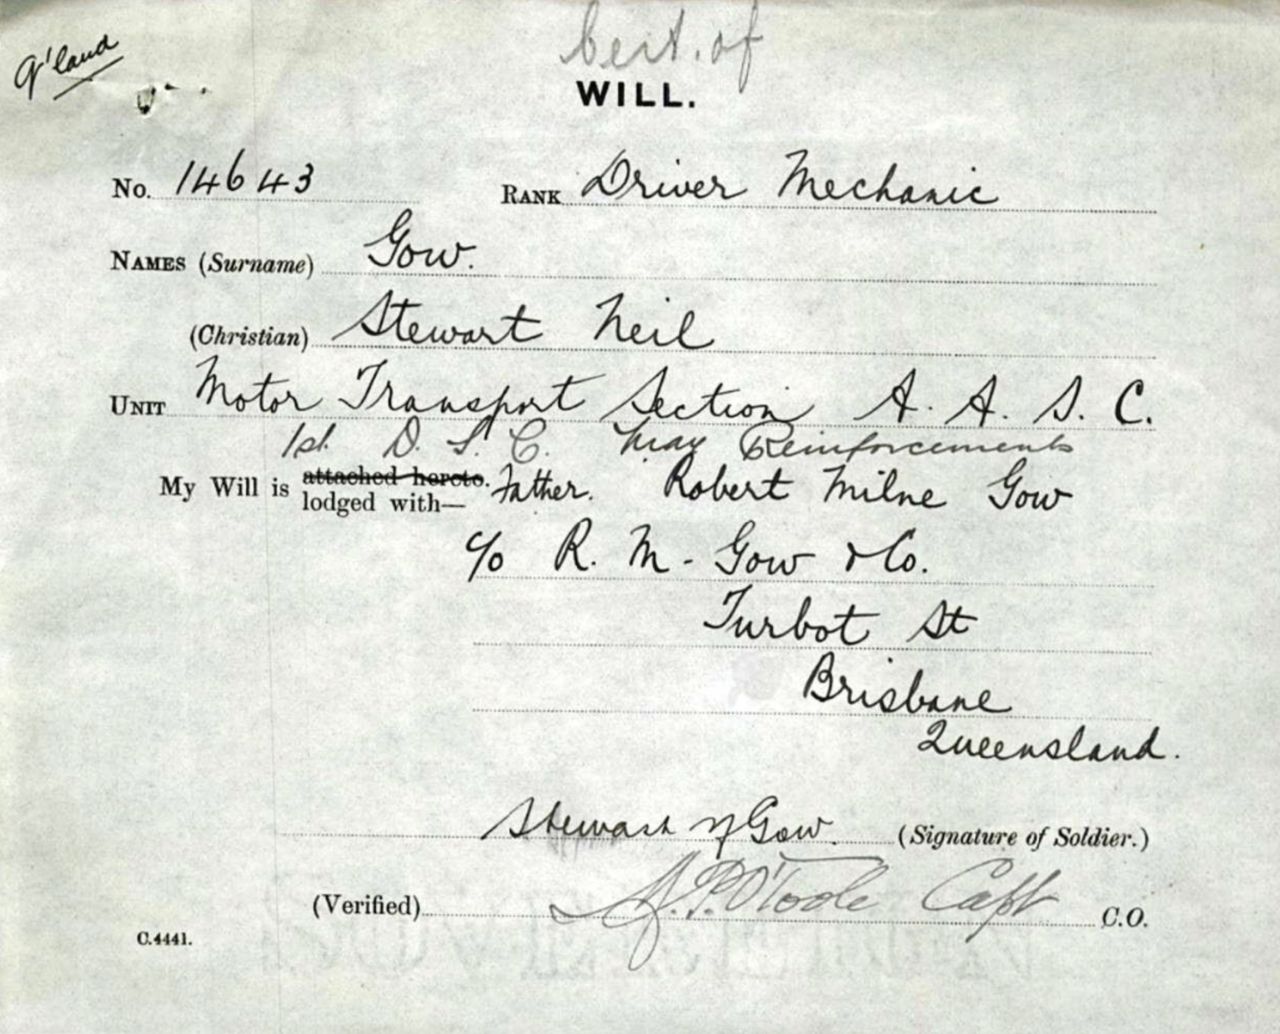 Q'land
Cert. of
WILL.
No. 14643 RANK Driver Mechanic
NAMES (Surname) Gow.
(Christian) Stewart Neil
UNIT Motor Transport Section A. A. S. C.
1st. D. S. C. May Reinforcements
My Will is attached hereto. Father. Robert Milne Gow
lodged with—
c/o R. M. Gow & Co.
Turbot St
Brisbane
Queensland.
Stewart N Gow. (Signature of Soldier.)
(Verified) J.P. O'Toole Capt C.O.
C.4441.